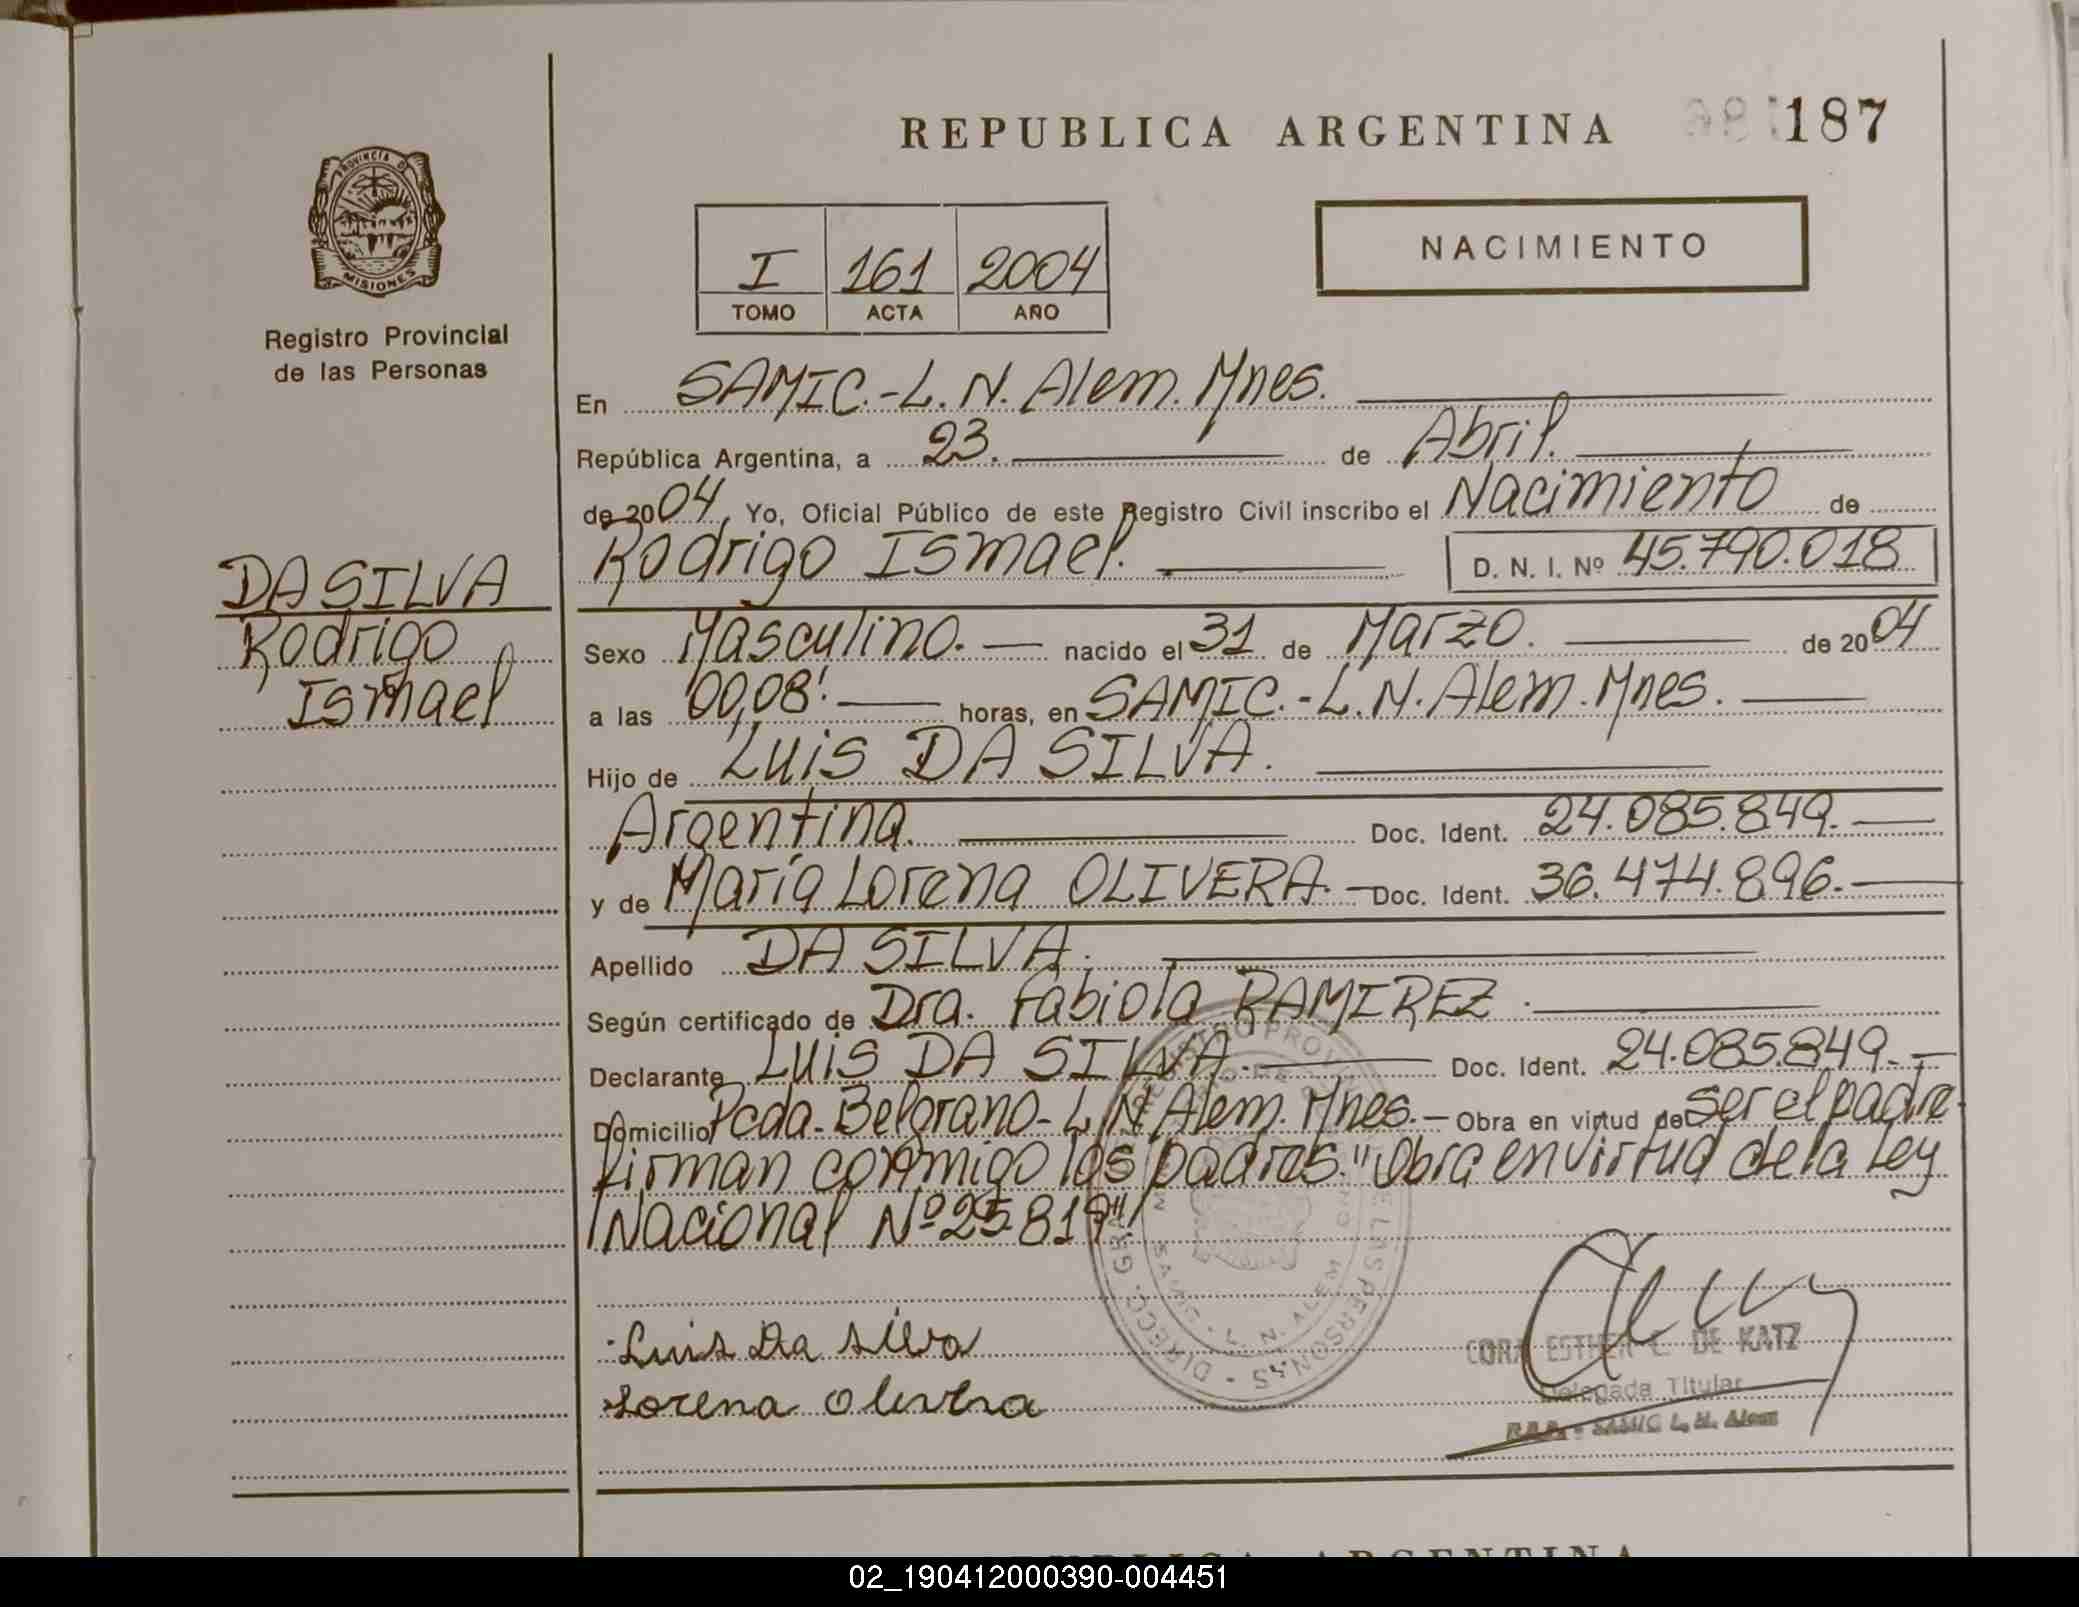 REPUBLICA ARGENTINA
187
PROVINCIA DE
MISIONES
Registro Provincial
de las Personas
NACIMIENTO
I 161 2004
TOMO ACTA AÑO
En SAMIC.-L.N. Alem. Mnes.
República Argentina, a 23. de Abril.
de 2004, Yo, Oficial Público de este Registro Civil inscribo el Nacimiento de
Rodrigo Ismael. D. N. I. Nº 45.790.018
DA SILVA
Rodrigo
Ismael
Sexo Masculino. nacido el 31 de Marzo. de 2004
a las 00,08'. horas, en SAMIC.-L.N. Alem. Mnes.
Hijo de Luis DA SILVA.
Argentina. Doc. Ident. 24.085.849.
y de María Lorena OLIVERA. Doc. Ident. 36.474.896.
Apellido DA SILVA.
Según certificado de Dra. Fabiola RAMIREZ.
Declarante Luis DA SILVA. Doc. Ident. 24.085.849.
Domicilio Pcda. Belgrano-L.N. Alem. Mnes. Obra en virtud de ser el padre
firman conmigo los padres. "Obra en virtud de la Ley
Nacional Nº 25819"
Luis Da Silva
Lorena Olivera
CORA ESTHER DE KATZ
Delegada Titular
SAMIC L. N. Alem
02_190412000390-004451